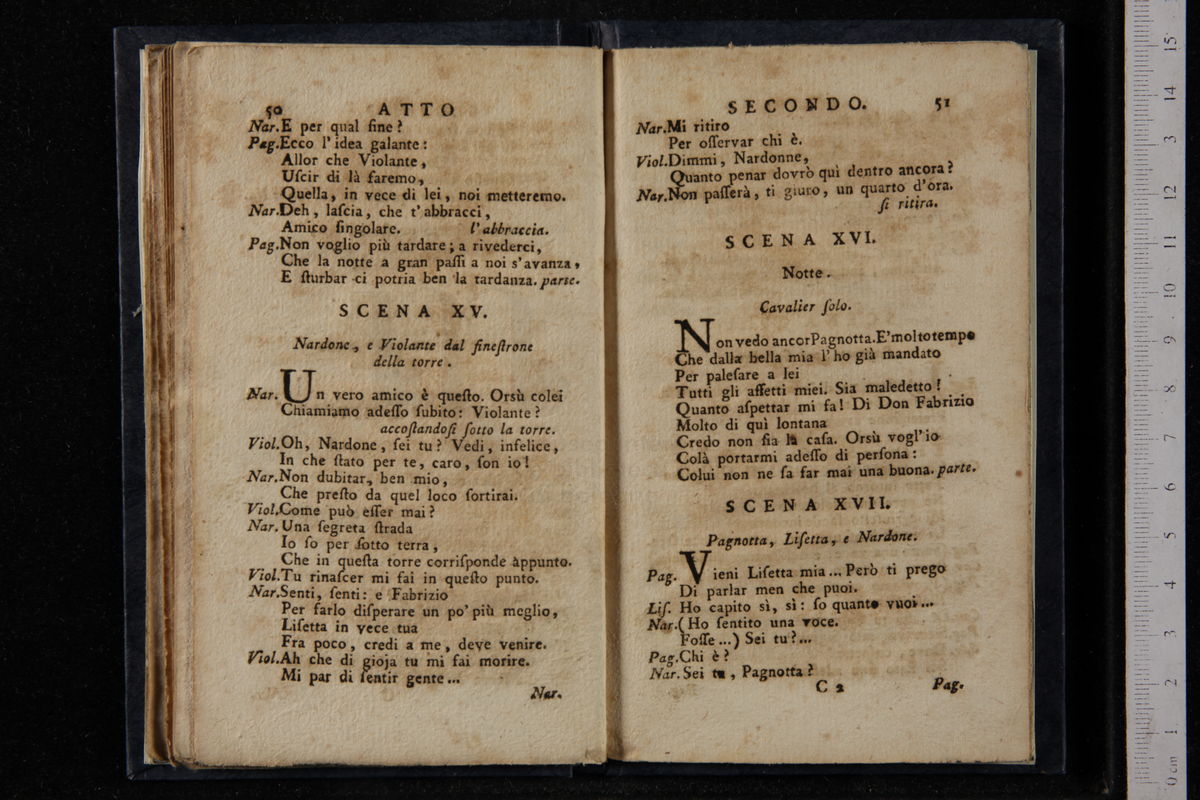 50 ATTO
Nar. E per qual fine?
Pag. Ecco l'idea galante:
Allor che Violante,
Uſcir di là faremo,
Quella, in vece di lei, noi metteremo.
Nar. Deh, laſcia, che t'abbracci,
Amico ſingolare. l'abbraccia.
Pag. Non voglio più tardare; a rivederci,
Che la notte a gran paſſi a noi s'avanza,
E ſturbar ci potria ben la tardanza. parte.
SCENA XV.
Nardone, e Violante dal fineſtrone
della torre.
Nar. Un vero amico è queſto. Orsù colei
Chiamiamo adeſſo ſubito: Violante?
accoſtandoſi ſotto la torre.
Viol. Oh, Nardone, ſei tu? Vedi, infelice,
In che ſtato per te, caro, ſon io!
Nar. Non dubitar, ben mio,
Che preſto da quel loco ſortirai.
Viol. Come può eſſer mai?
Nar. Una ſegreta ſtrada
Io ſo per ſotto terra,
Che in queſta torre corriſponde àppunto.
Viol. Tu rinaſcer mi fai in queſto punto.
Nar. Senti, ſenti: e Fabrizio
Per farlo diſperare un po' più meglio,
Liſetta in vece tua
Fra poco, credi a me, deve venire.
Viol. Ah che di gioja tu mi fai morire.
Mi par di ſentir gente...
Nar.
SECONDO. 51
Nar. Mi ritiro
Per oſſervar chi è.
Viol. Dimmi, Nardonne,
Quanto penar dovrò quì dentro ancora?
Nar. Non paſſerà, ti giuro, un quarto d'ora.
ſi ritira.
SCENA XVI.
Notte.
Cavalier ſolo.
Non vedo ancor Pagnotta. E' molto tempo
Che dalla bella mia l'ho già mandato
Per paleſare a lei
Tutti gli affetti miei. Sia maledetto!
Quanto aſpettar mi fa! Di Don Fabrizio
Molto di quì lontana
Credo non ſia la caſa. Orsù vogl'io
Colà portarmi adeſſo di perſona:
Colui non ne fa far mai una buona. parte.
SCENA XVII.
Pagnotta, Liſetta, e Nardone.
Pag. Vieni Liſetta mia... Però ti prego
Di parlar men che puoi.
Liſ. Ho capito sì, sì: ſo quanto vuoi...
Nar. (Ho ſentito una voce.
Foſſe...) Sei tu?...
Pag. Chi è?
Nar. Sei tu, Pagnotta?
C 2 Pag.
0 cm 1 2 3 4 5 6 7 8 9 10 11 12 3 14 15